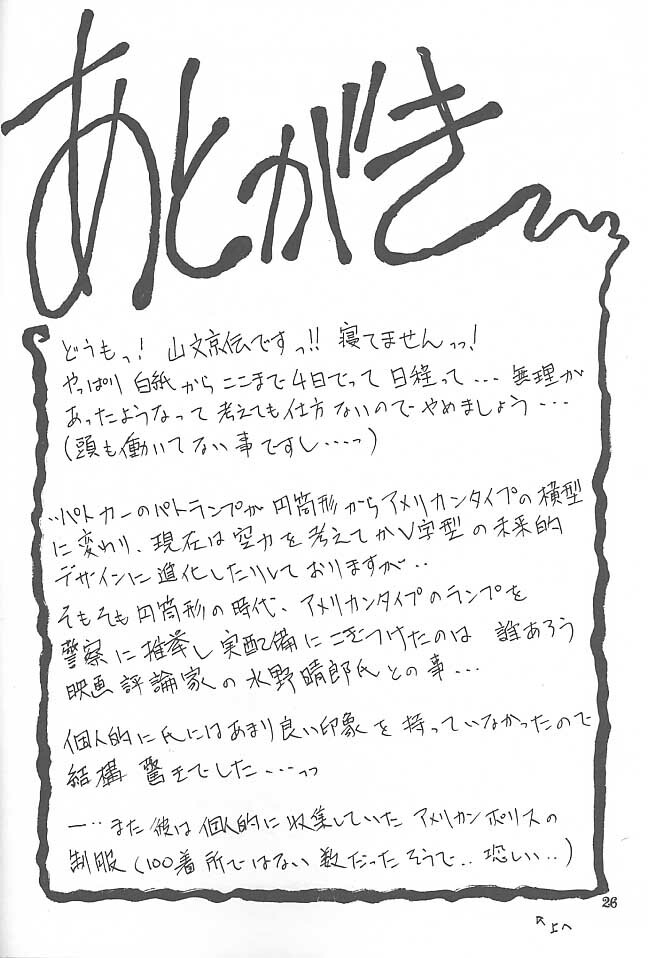 あとがき
どうもっ! 山文京伝ですっ!! 寝てませんっっ!
やっぱり 白紙からここまで4日でって 日程って・・・ 無理が
あったようなって 考えても仕方ないので やめましょう・・・
(頭も働いてない事ですし・・・・っ)
・・パトカーのパトランプが 円筒形からアメリカンタイプの横型
に変わり、現在は空力を考えてかV字型の未来的
デザインに進化したりしておりますが・・
そもそも円筒形の時代、アメリカンタイプのランプを
警察に推挙し実配備にこぎつけたのは 誰あろう
映画評論家の水野晴郎氏との事・・・
個人的に氏にはあまり良い印象を持っていなかったので
結構 驚きでした・・・・っっ
ー・・また彼は個人的に収集していた アメリカンポリスの
制服(100着所ではない数だったそうで・・恐しい・・)
26
↖上へ